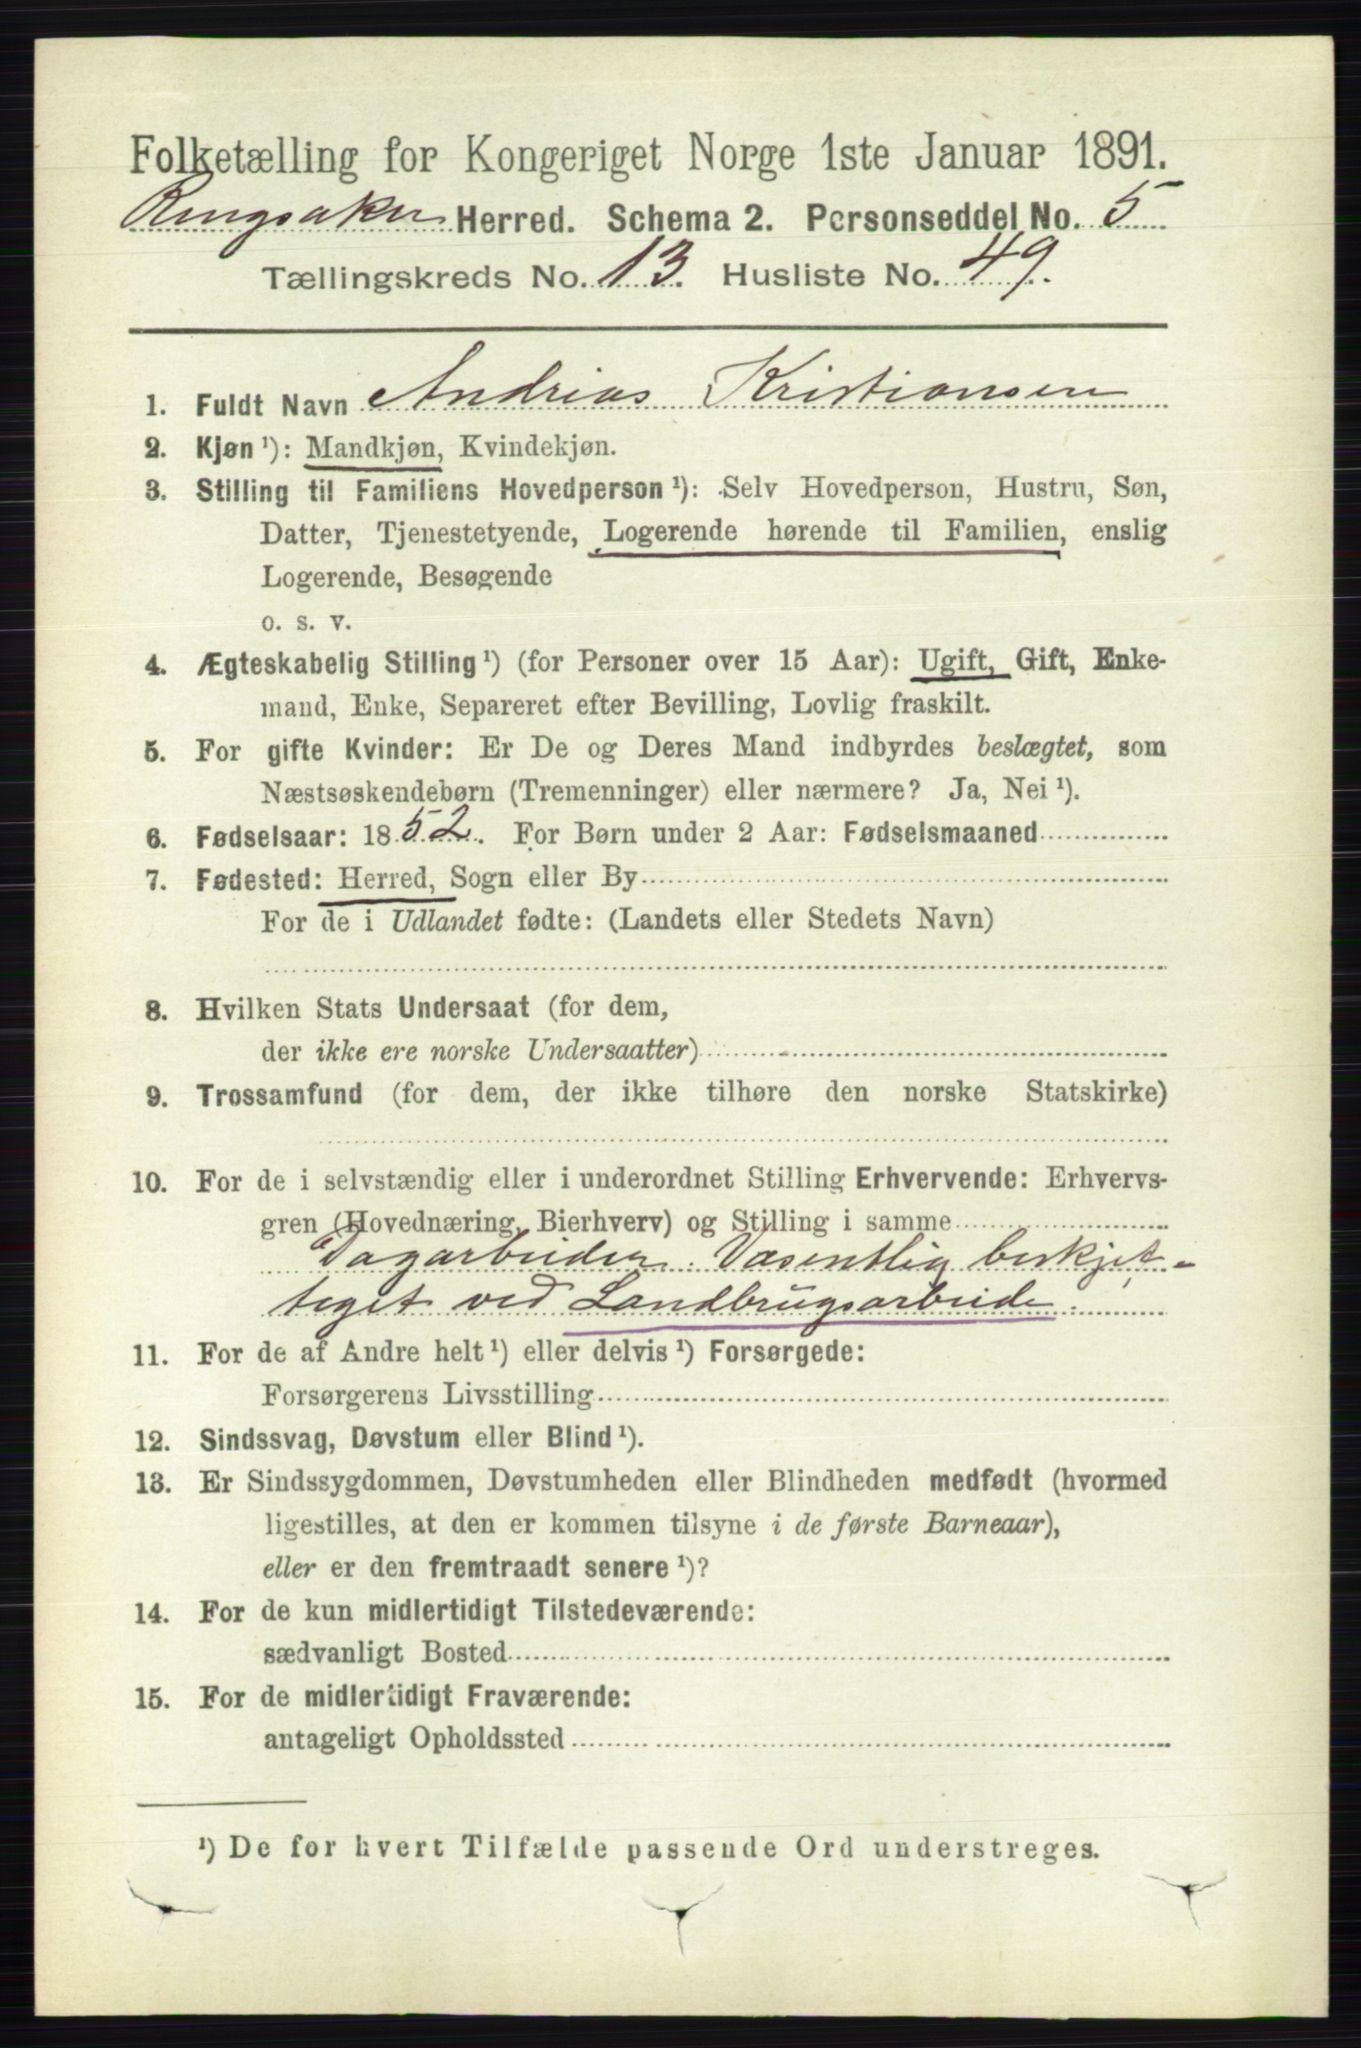 Folketælling for Kongeriget Norge 1ste Januar 1891.
Ringsaker Herred. Schema 2. Personseddel No. 5
Tællingskreds No. 13. Husliste No. 49.
1. Fuldt Navn Andrias Kristiansen
2. Kjøn ¹): Mandkjøn, Kvindekjøn.
3. Stilling til Familiens Hovedperson ¹): Selv Hovedperson, Hustru, Søn,
Datter, Tjenestetyende, Logerende hørende til Familien, enslig
Logerende, Besøgende
o. s. v.
4. Ægteskabelig Stilling ¹) (for Personer over 15 Aar): Ugift, Gift, Enke-
mand, Enke, Separeret efter Bevilling, Lovlig fraskilt.
5. For gifte Kvinder: Er De og Deres Mand indbyrdes beslægtet, som
Næstsøskendebørn (Tremenninger) eller nærmere? Ja, Nei ¹).
6. Fødselsaar: 1852. For Børn under 2 Aar: Fødselsmaaned
7. Fødested: Herred, Sogn eller By
For de i Udlandet fødte: (Landets eller Stedets Navn)
8. Hvilken Stats Undersaat (for dem,
der ikke ere norske Undersaatter)
9. Trossamfund (for dem, der ikke tilhøre den norske Statskirke)
10. For de i selvstændig eller i underordnet Stilling Erhvervende: Erhvervs-
gren (Hovednæring, Bierhverv) og Stilling i samme
Dagarbeider. Væsentlig beskjæt-
tiget ved Landbrugsarbeide.
11. For de af Andre helt ¹) eller delvis ¹) Forsørgede:
Forsørgerens Livsstilling
12. Sindssvag, Døvstum eller Blind ¹).
13. Er Sindssygdommen, Døvstumheden eller Blindheden medfødt (hvormed
ligestilles, at den er kommen tilsyne i de første Barneaar),
eller er den fremtraadt senere ¹)?
14. For de kun midlertidigt Tilstedeværende:
sædvanligt Bosted
15. For de midlertidigt Fraværende:
antageligt Opholdssted
¹) De for hvert Tilfælde passende Ord understreges.